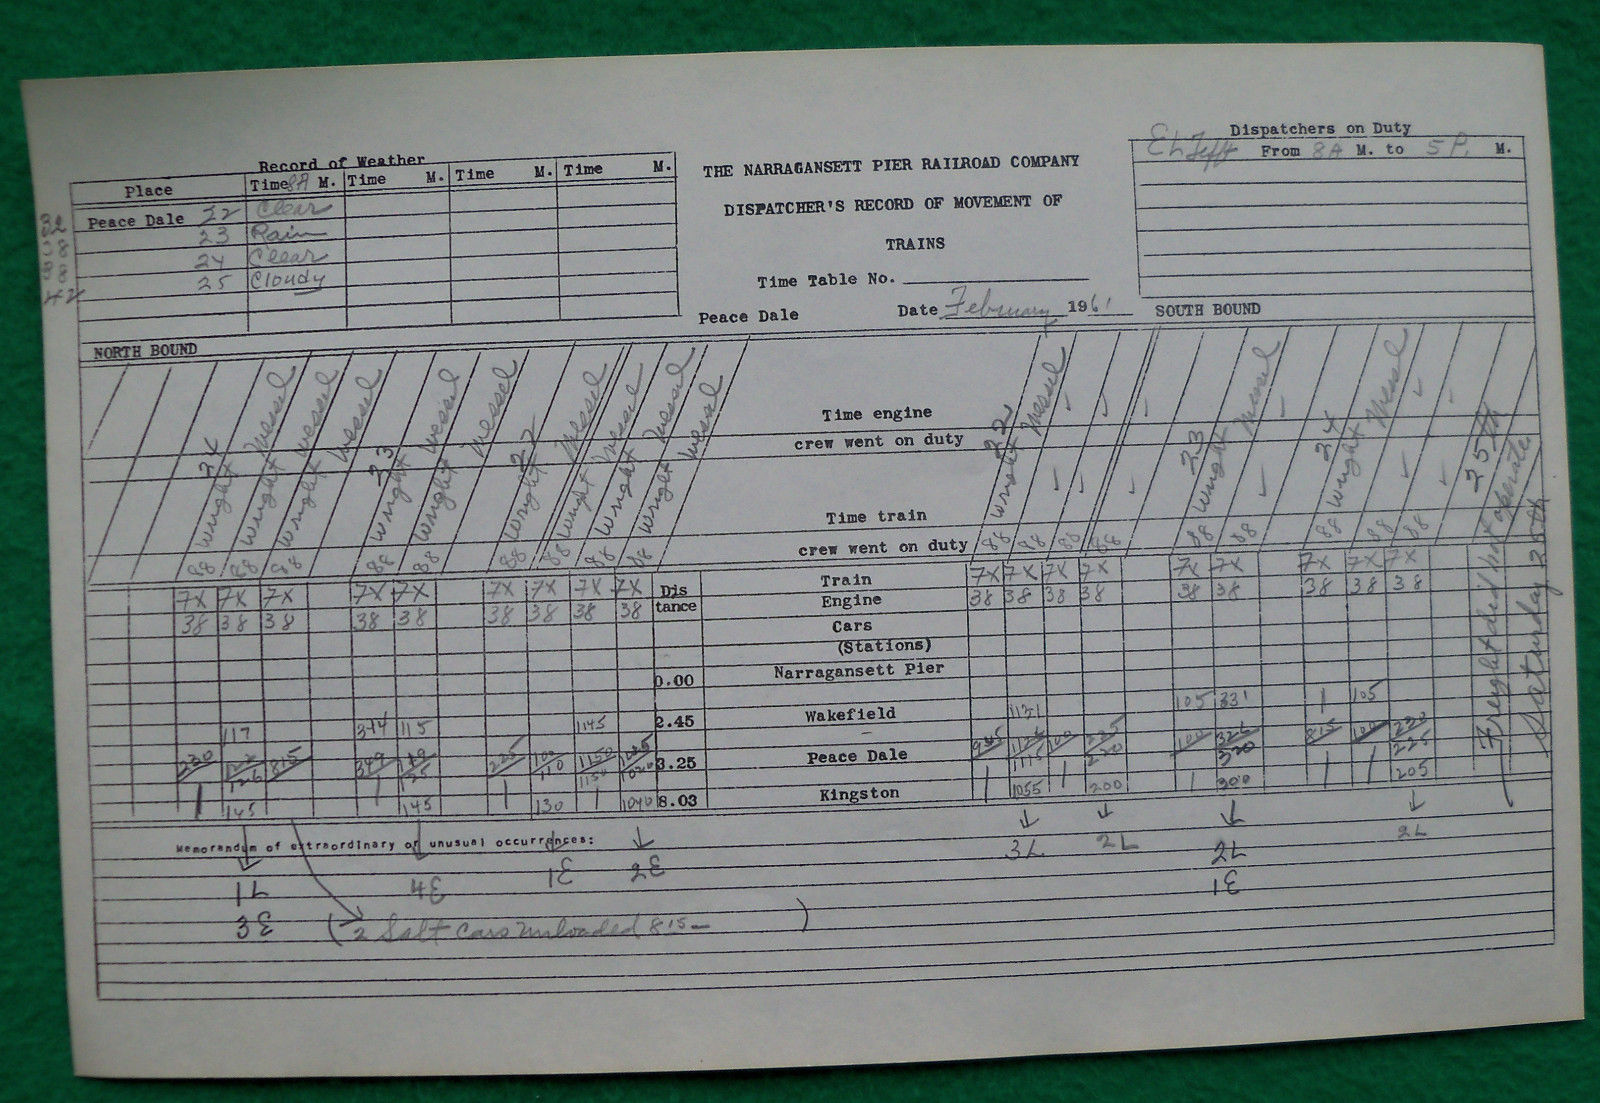 Record of Weather
Place Time 8A M. Time M. Time M. Time M.
Peace Dale 22 Clear
23 Rain
24 Clear
25 Cloudy
32
42
THE NARRAGANSETT PIER RAILROAD COMPANY
DISPATCHER'S RECORD OF MOVEMENT OF
TRAINS
Time Table No.
Peace Dale Date February 1961
Dispatchers on Duty
E L Tefft From 8A M. to 5 P. M.
NORTH BOUND
SOUTH BOUND
24 23 22
Wright Wessel Wright Wessel Wright Wessel Wright Wessel Wright Wessel Wright Wessel Wright Wessel Wright Wessel Wright Wessel
88 88 88 88 88 88 88 88 88
Time engine
crew went on duty
Time train
crew went on duty
22 23 24 25th
Wright Wessel Wright Wessel Wright Wessel
88 88 88 88 88 88 88 88 88
Freight did not operate
Saturday 25th
7X 7X 7X 7X 7X 7X 7X 7X 7X Dis Train 7X 7X 7X 7X 7X 7X 7X 7X 7X
38 38 38 38 38 38 38 38 38 tance Engine 38 38 38 38 38 38 38 38 38
Cars
(Stations)
0.00 Narragansett Pier
117 344 115 1145 2.45 Wakefield 1131 105 331 105
230 815 349 225 100 110 1150 1150 3.25 Peace Dale 945 1115 100 225 220 100 320 815 100 230 225
145 145 130 1040 8.03 Kingston 1055 200 300 205
Memorandum of extraordinary or unusual occurrences:
1L 4E 1E 2E 3L 2L 2L 2L
3E 1E
(2 Salt cars unloaded 815 —)